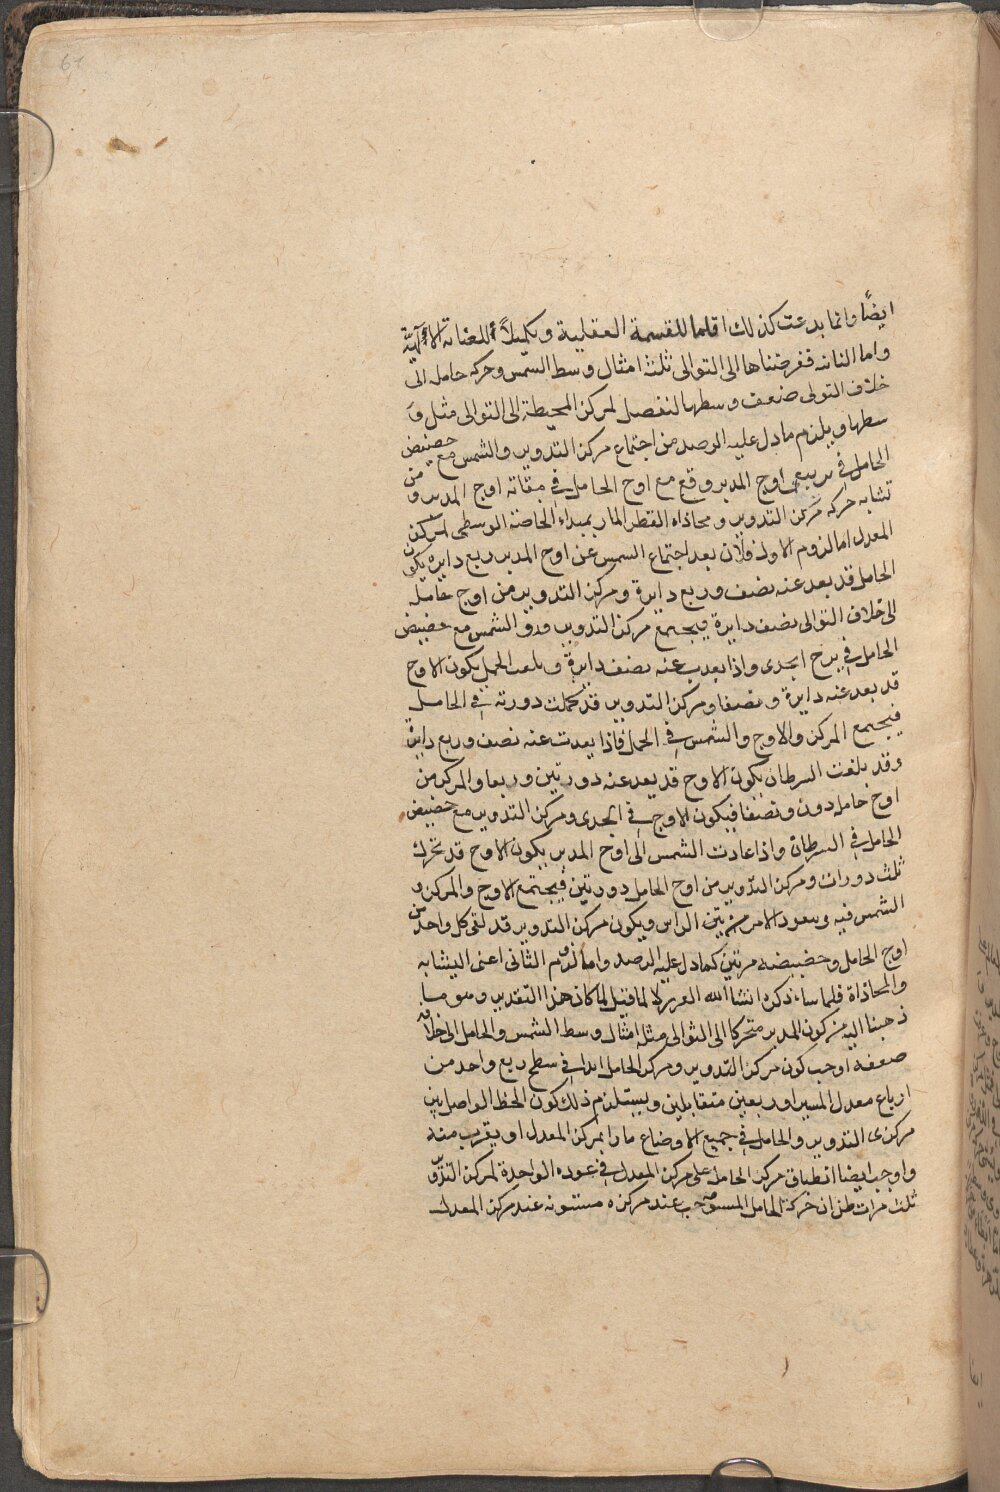 ايضًا وانما بدعت كذلك اقلما للقسمة العقلية وتكميلاً للعناية الالهية
واما الثانية ففرضناها الى التوالى ثلث امثال وسط الشمس وحركه حامله الى
خلاف التولى ضعف وسطها لتفصل لمركز المحيطة الى التوالى مثل و
سطها ويلزم ما دل عليه الرصد من اجتماع مركز التدوير والشمس مع حضيض
الحامل فى تربيعى اوج المدير وقع مع اوج الحامل فى مقاتة اوج المدير و من
تشابه حركه مركز التدوير و محاذاه القطر المار بمبداء الخاصة الوسطى لمركز
المعدل اما لزوم الاول فلأن بعد اجتماع الشمس عن اوج المدير ربع دايره يكون
الحامل قد بعد عنه نصف وربع دايرة ومركز التدوير من اوج حامله
الى خلاف التوالى نصف دايرة فيجتمع مركز التدوير و الشمس مع حضيض
الحامل فى برج الجدى واذا بعدت عنه نصف دايرة و بلغت الحمل يكون الاوج
قد بعد عنه دايرة و نصفا ومركز التدوير قد كملت دورته فى الحامل
فيجتمع المركز والاوج والشمس فى الحمل فاذا بعدت عنه نصف وربع دايرة
وقد بلغت السرطان يكون الاوج قد بعد عنه دورتين وربعا والمركز من
اوج حامله دورة ونصفا فيكون الاوج فى الجدى ومركز التدوير مع حضيض
الحامل فى السرطان واذا عادت الشمس الى اوج المدير يكون الاوج قد تحرك
ثلث دورات ومركز التدوير من اوج الحامل دورتين فيجتمع الاوج والمركز و
الشمس فيه ويعود الامر من الراس ويكون مركز التدوير قد لقى كل واحد من
اوج الحامل وحضيضه مرتين كما دل عليه الرصد واما لزوم الثانى اعنى التشابه
والمحاذاة فلما ساذكره انشا الله العزيز لا لما قيل لما كان هذا التقدير وهو ما
ذهبنا اليه من كون المدير متحركا الى التوالى مثله امثال وسط الشمس والحامل الى خلافه
ضعفه اوجب كون مركز التدوير ومركز الحامل ابدا فى سطح ربع واحد من
ارباع معدل المسير او ربعين متقابلين ويستلزم ذلك كون الخط الواصل بين
مركزى التدوير والحامل فى جميع الاوضاع مارا بمركز المعدل او يقرب منه
واوجب ايضا انطباق مركز الحامل على مركز المعدل فى عوده الواحدة لمركز التدوير
ثلث مرات ظن ان حركة الحامل عند مركزه مستويه عند مركز المعدل